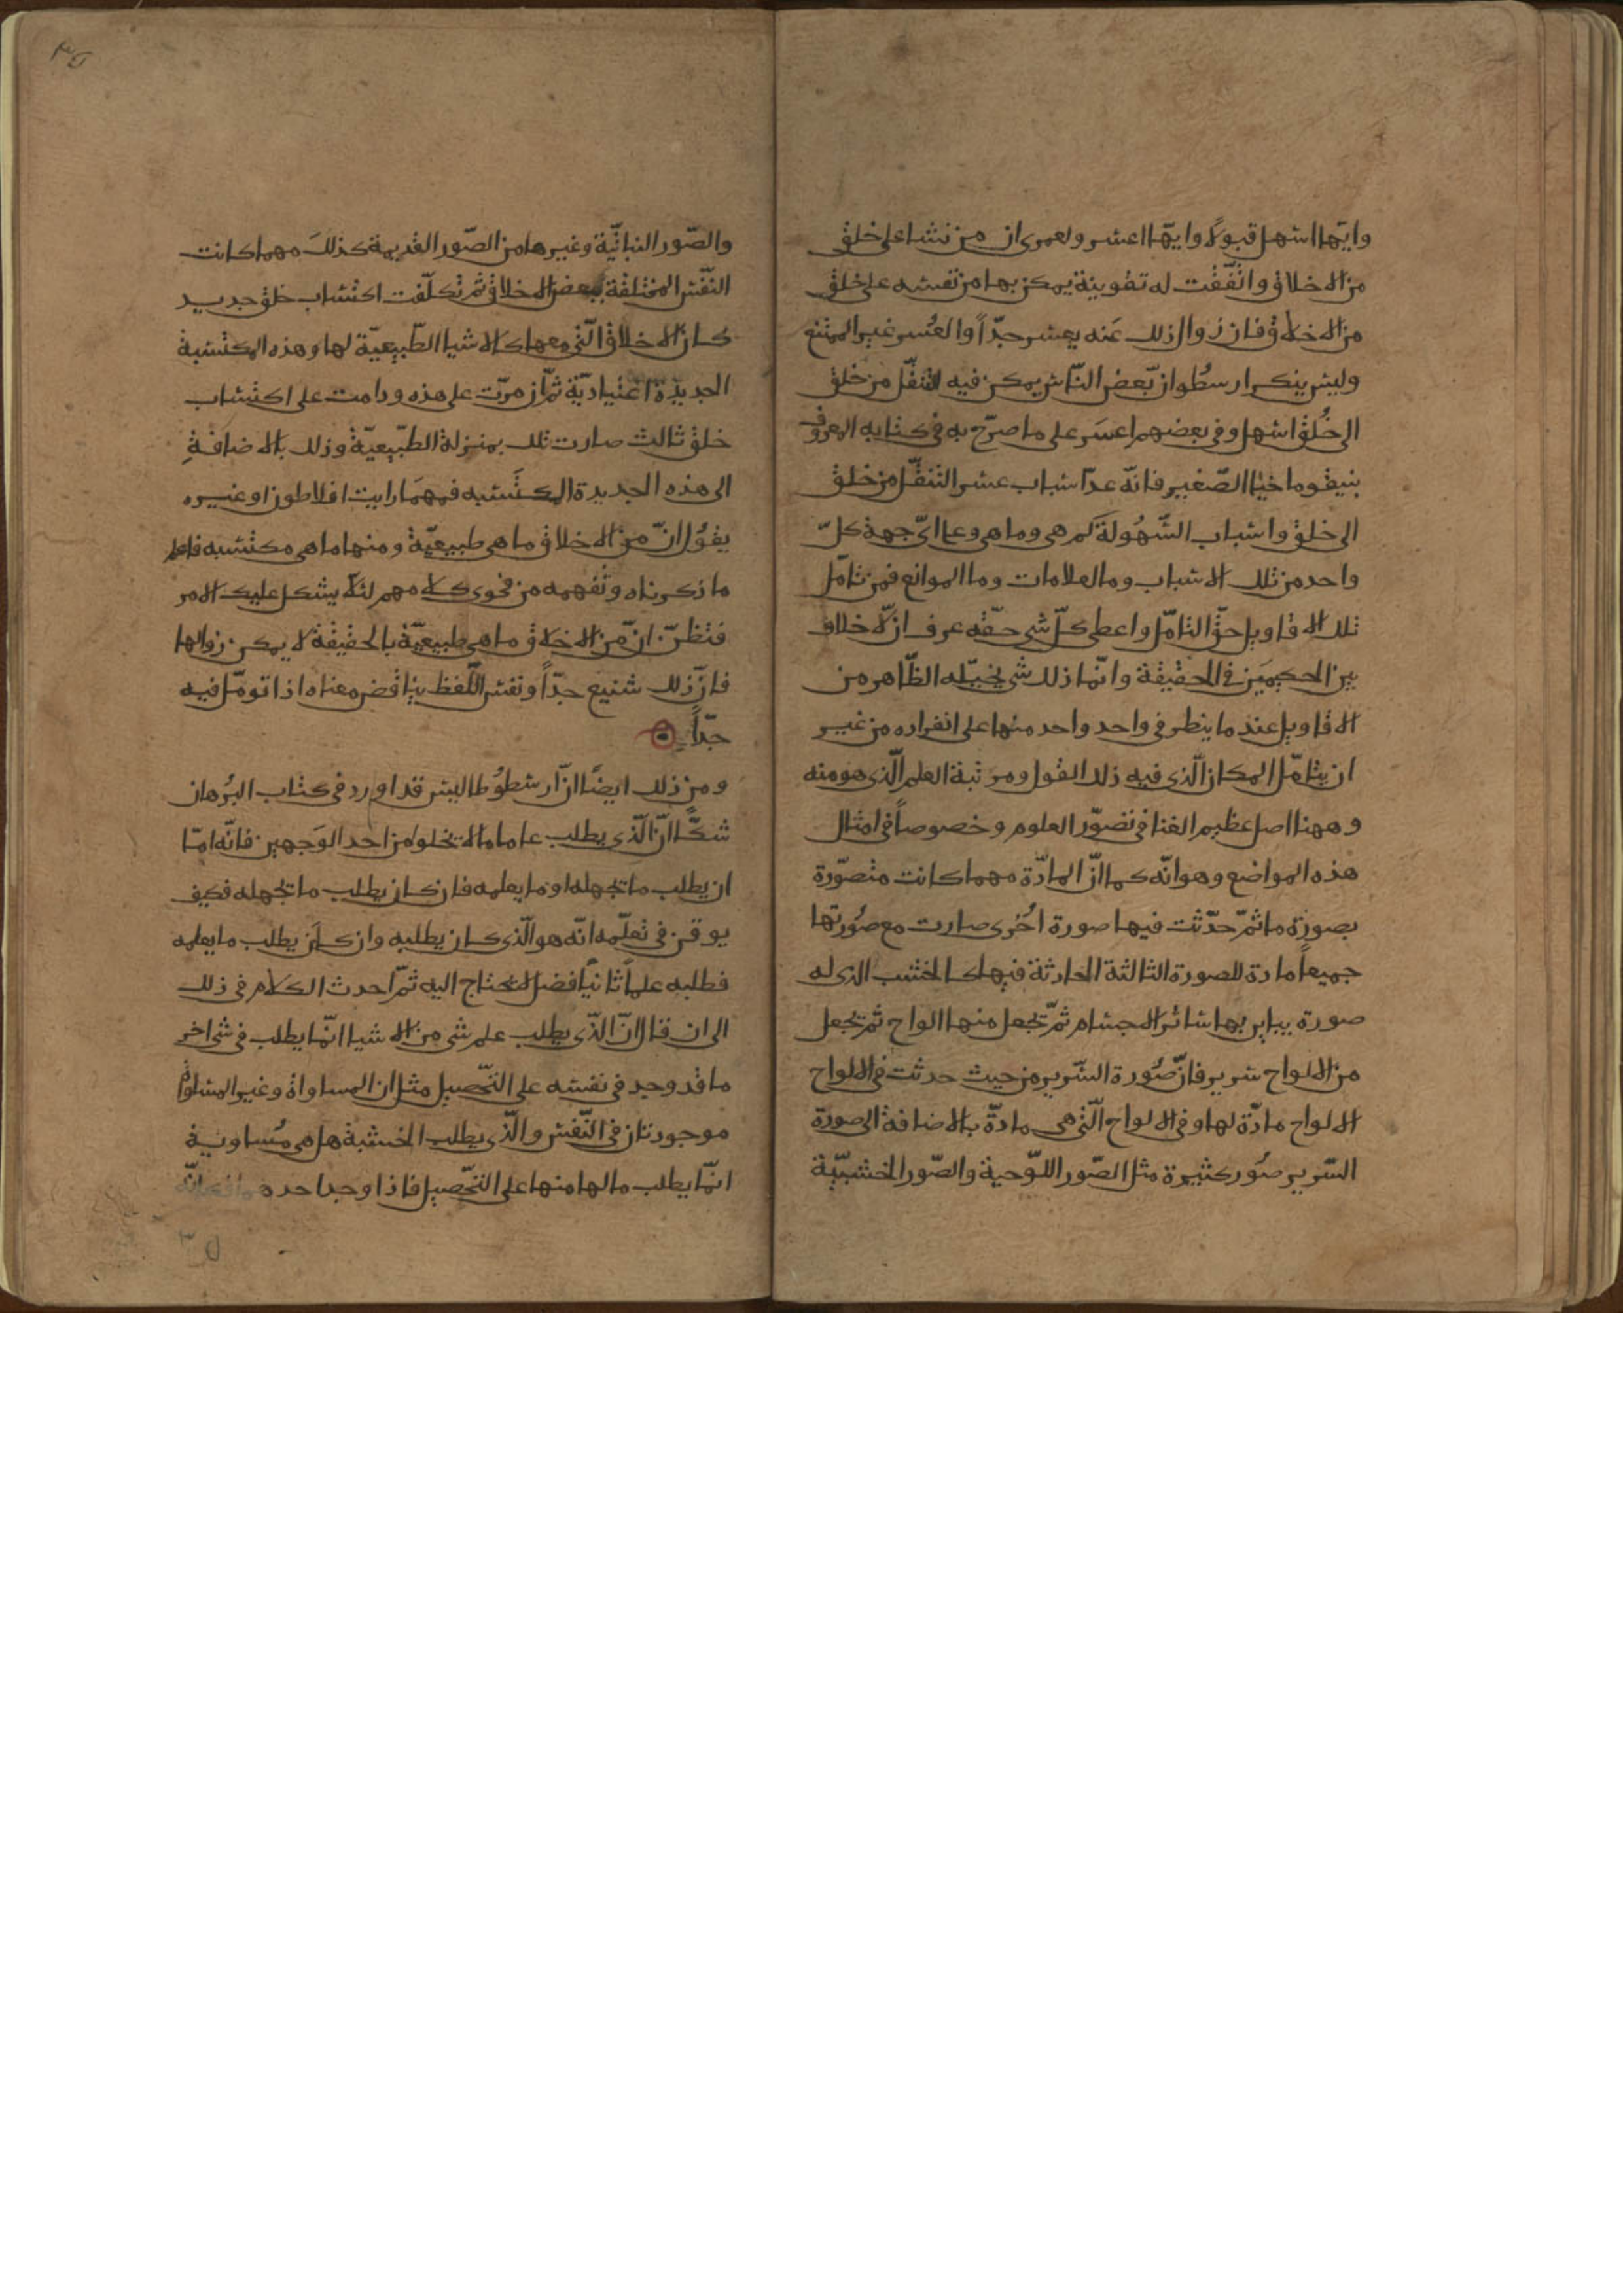 وايّها اسهل قبولاً وايّها اعسر ولعمرى ان من نشا على خلق
من الاخلاق واتّفقت له تقوية يمكن بها من نفسه على خلق
من الاخلاق فان زوال ذلك عنه يعسر جدّاً والعُسر غير الممتنع
وليس ينكر ارسطو ان بعض النّاس يمكن فيه التنقّل من خلق
الى خُلق اسهل وفى بعضهم اعسَر على ما صرّح به فى كتابه المعروف
بنيقوماخيا الصّغير فانّه عدّ اسباب عسر التنقّل من خلق
الى خلق واسباب السّهُولة كم هى وما هى وعلى اىّ جهة كلّ
واحد من تلك الاسباب وما العلامات وما الموانع فمن تامّل
تلك الاقاويل حقّ التامّل واعطى كلّ شى حقّه عرف ان لا خلاف
بين الحكيمَين فى الحقيقة وانّما ذلك شى يخيّله الظّاهر من
الاقاويل عند ما ينظر فى واحد واحد منها على انفراده من غير
ان يتامّل المكان الّذى فيه ذلك القول ومرتبة العلم الّذى هو منه
وههنا اصل عظيم الغنا فى تصوّر العلوم وخصوصاً فى امثال
هذه المواضع وهو انّه كما انّ المادّة مهما كانت متصوّرة
بصورة ما ثمّ حدّثت فيها صورة اُخرى صارت مع صُورتها
جميعاً مادة للصورة الثالثة الحادثة فيها كالخشب الذى له
صورة يباين بها سائر الاجسام ثمّ تجعل منها الواح ثم تجعل
من الالواح سرير فانّ صُورة السّرير من حيث حدثت فى الالواح
الالواح مادّة لها وفى الالواح الّتى هى مادّة بالاضافة الى صورة
السّرير صُور كثيرة مثل الصّور اللّوحية والصّور الخشبيّة
والصّور النباتيّة وغيرها من الصّور القديمة كذلك مهما كانت
النّفس المختلفة ببعض الاخلاق ثم تكلّفت اكتساب خلق جديد
كان الاخلاق الّتى معها كالاشيا الطّبيعيّة لها وهذه المكتسبة
الجديدة اعتياديّة ثمّ ان مرّت على هذه ودامت على اكتساب
خلق ثالث صارت تلك بمنزلة الطّبيعيّة وذلك بالاضافةِ
الى هذه الجديدة المكتَسبه فمهمَا رايت افلاطون او غيره
يقوُل انّ من الاخلاق ما هى طبيعيّة ومنها ما هى مكتسبه فاعلم
ما ذكرناه وتفهمه من فحوى كلامهم لئلّا يشكل عليك الامر
فتظنّ انّ من الاخلاق ما هى طبيعيّة بالحقيقة لا يمكن زوالها
فانّ ذلك شنيع جدّاً ونفس اللّفظ يناقض معناه اذا تومّل فيه
جدّاً
ومن ذلك ايضًا انّ ارسطوُطاليس قد اورد فى كتاب البُرهان
شكًّا انّ الّذى يطلب علما ما لا يخلو من احد الوَجهين فانّه امّا
ان يطلب ما تجهله او ما يعلمه فان كان يطلب ما تجهله فكيف
يوقن فى تعلّمه انّه هو الّذى كان يطلبه وان كان يطلب ما يعلمه
فطلبه علماً ثانياً فضل لا يحتاج اليه ثمّ احدث الكلام فى ذلك
الى ان قال انّ الّذى يطلب علم شى من الاشيا انّما يطلب فى شى اخر
ما قد وجد فى نفسه على التّحصيل مثل ان المساواة وغير المساواة
موجودتان فى النّفس والّذى يطلب الخشبة هل هى مُساوية
انّما يطلب ما لها منها على التّحصيل فاذا وجد احدهما فكانّه